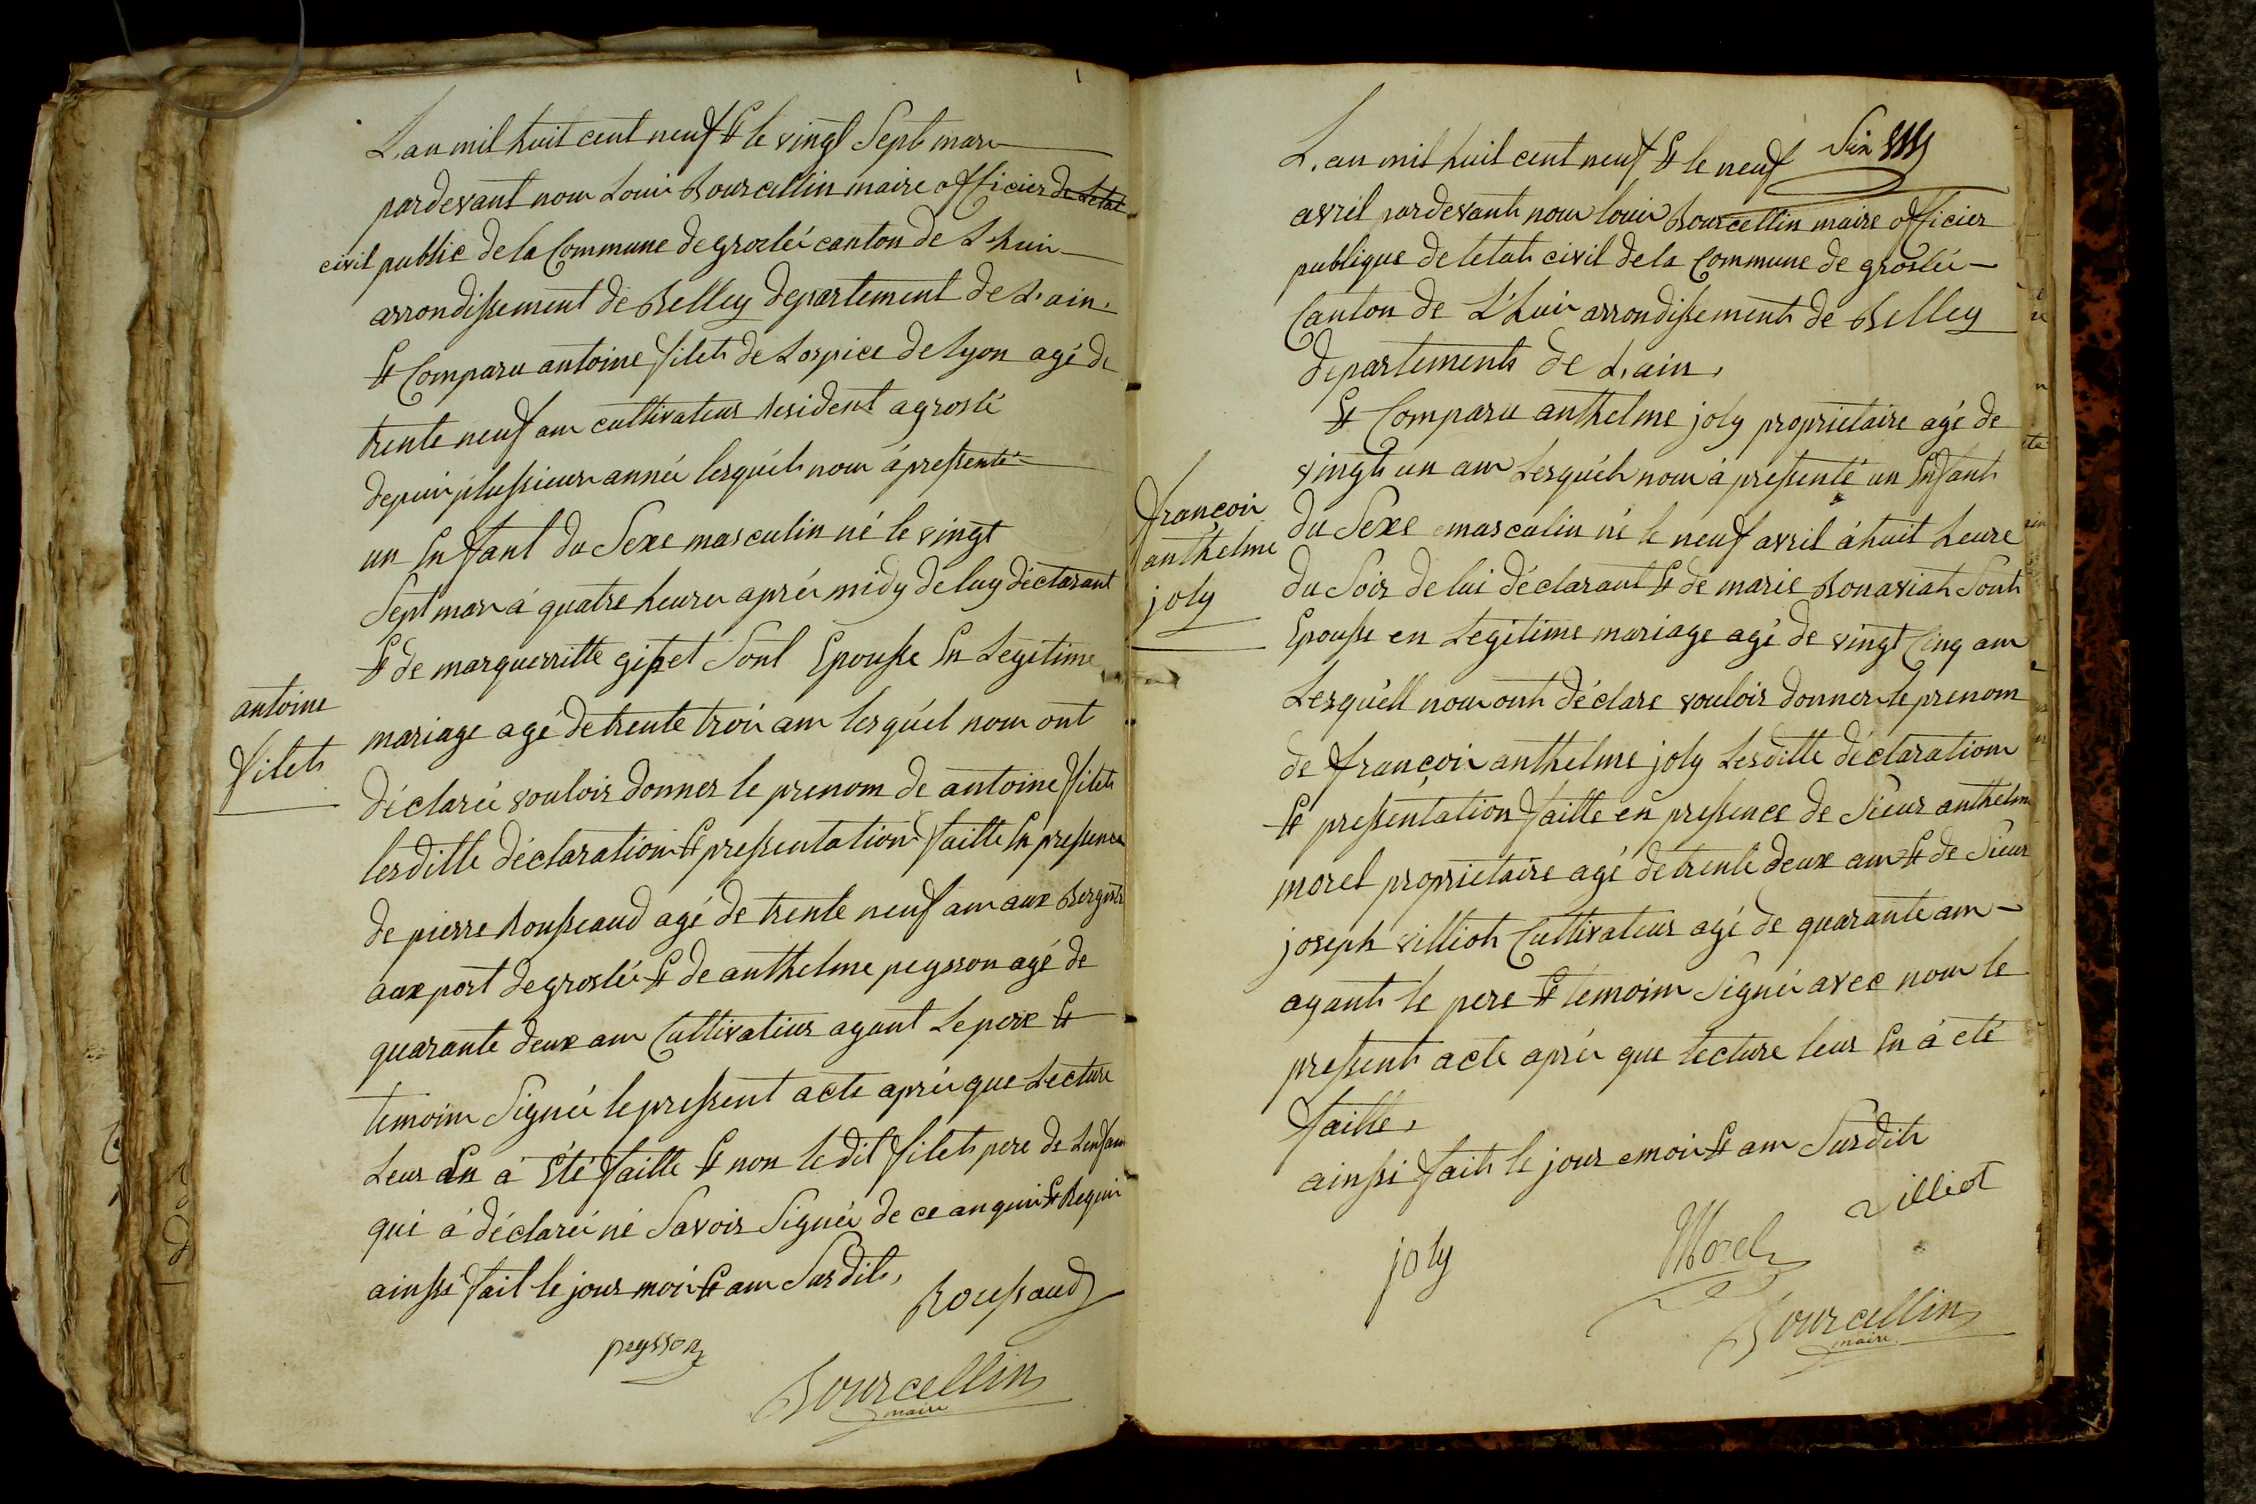 L.an mil huit cent neuf Et le vingt Sept mars
pardevant nous Louis Bourcellin maire officier de Letat
civil public de la Commune de groslée canton de L.huis
arrondissement de Belley departement de L.ain.
Et Comparu antoine filet de Lospice de Lyon agé de
trente neuf ans cultivateur Resident a groslé
depuis plussieurs année lesquéls nous á pressenté
un Enffant du Sexe masculin né le vingt
Sept mars á quatre heures aprés midy de luy déclarant
Et de marguerritte gipet Sont Epousse En Legitime
antoine
filets
mariage agé de trente trois ans lesquél nous ont
déclarée vouloir donner le prenom de antoine filets
lesditte déclaration Et pressentation faitte En pressence
de pierre Rousseaud agé de trente neuf ans aux
aux port de groslée Et de anthelme peysson agé de
quarante deux ans Cultivateur ayant Le pere Et
temoins Signée le pressent acte aprés que Lecture
Leur En á Eté faitte Et non Ledit filets pere de Lenfant
qui á déclarée né Savoir Signée de ce anquis Et Requis
ainssi fait le jour mois Et ans Sus dits,
Roussaud
peysson
Bourcellin
maire
Six
L.an mil huit cent neuf Et le neuf
avril pardevant nous louis Bourcellin maire officier
publique de letat civil de la Commune de groslée
Canton de L'huis arrondissement de Belley
departements de L.ain,
Et Comparu anthelme joly proprietaire agé de
vingt un ans Lesquéls nous á pressenté un Enfant
françois
anthelme
joly
du Sexe masculin né le neuf avril á huit heure
du Soir de lui déclarant Et de marie Bonaviat Sont
Epousse en Legitime mariage agé de vingt Cinq ans
Lesquéll nous ont déclare vouloir donner le prenom
de françois anthelme joly Lesditte déclarations
Et pressentation faitte en pressence de Sieur anthelme
morel proprietaire agé de trente deux ans Et de Sieur
joseph villiot Cultivateur agé de quarante ans
ayants le pere Et temoins Signée avec nous le
pressent acte aprés que lecture leur En á eté
faitte,
ainssi faits le jour emois Et ans Susdits
villiot
joly
Morel
Bourcellin
maire